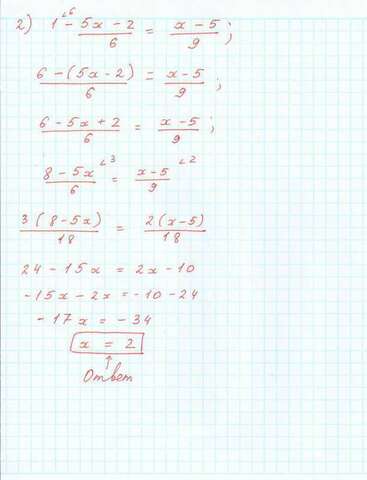 2) 1⌞6 - 5x - 2 / 6 = x - 5 / 9 ;
6 - (5x - 2) / 6 = x - 5 / 9 ;
6 - 5x + 2 / 6 = x - 5 / 9 ;
8 - 5x / 6 ⌞3 = x - 5 / 9 ⌞2
3(8 - 5x) / 18 = 2(x - 5) / 18
24 - 15x = 2x - 10
-15x - 2x = -10 - 24
-17x = -34
x = 2
↑
Ответ